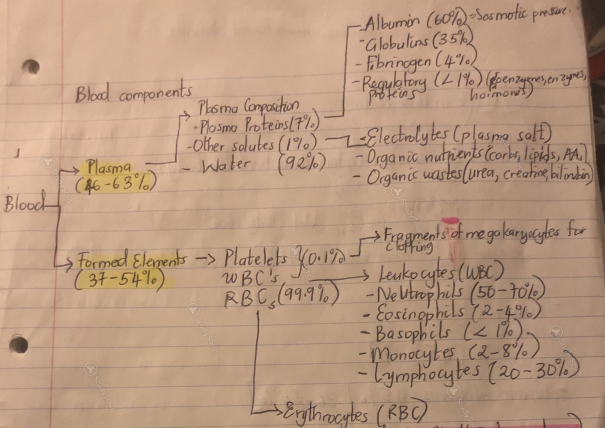 Albumin (60%) = Sosmotic pressure.
- Globulins (35%)
- Fibrinogen (4%)
- Regulatory (<1%) (coenzymes, enzymes,
proteins hormones)
Blood components
Plasma Composition
- Plasma Proteins (7%)
- Other solutes (1%)
- Water (92%)
Electrolytes (plasma salt)
- Organic nutrients (carbs, lipids, AA)
- Organic wastes (urea, creatine, bilirubin)
Plasma
(46-63%)
Blood
Formed Elements
(37-54%)
Platelets } (0.1%)
WBC's
RBCs (99.9%)
Fragments of megakaryocytes for
clotting
Leukocytes (WBC)
- Neutrophils (50-70%)
- Eosinophils (2-4%)
- Basophils (<1%)
- Monocytes (2-8%)
- Lymphocytes (20-30%)
Erythrocytes (RBC)